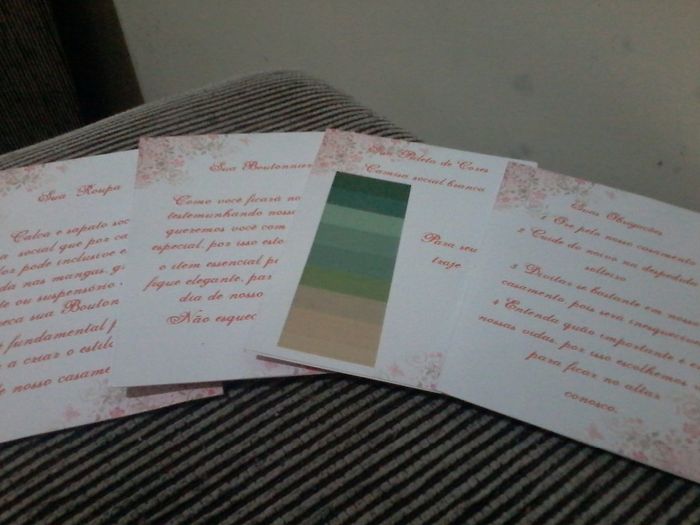 Sua Roupa
Calça e sapato soc
a social que por ca
pode inclusive e
da nas mangas, g
te ou suspensório
eça sua Bouton
r fundamental p
a criar o estil
e nosso casame
Sua Boutonn
Como você ficará no
testemunhando nosso
queremos você com
especial, por isso esto
o item essencial p
fique elegante, par
dia de nosso
Não esquec
Sua Paleta de Cores
Camisa social branca
Para seu
traje
Suas Obrigações
1 Ore pelo nosso casamento
2 Cuide do noivo na despedida
solteiro
3 Divirta se bastante em nosso
casamento, pois será inesquecível
4 Entenda quão importante é em
nossas vidas, por isso escolhemos
para ficar no altar
conosco.